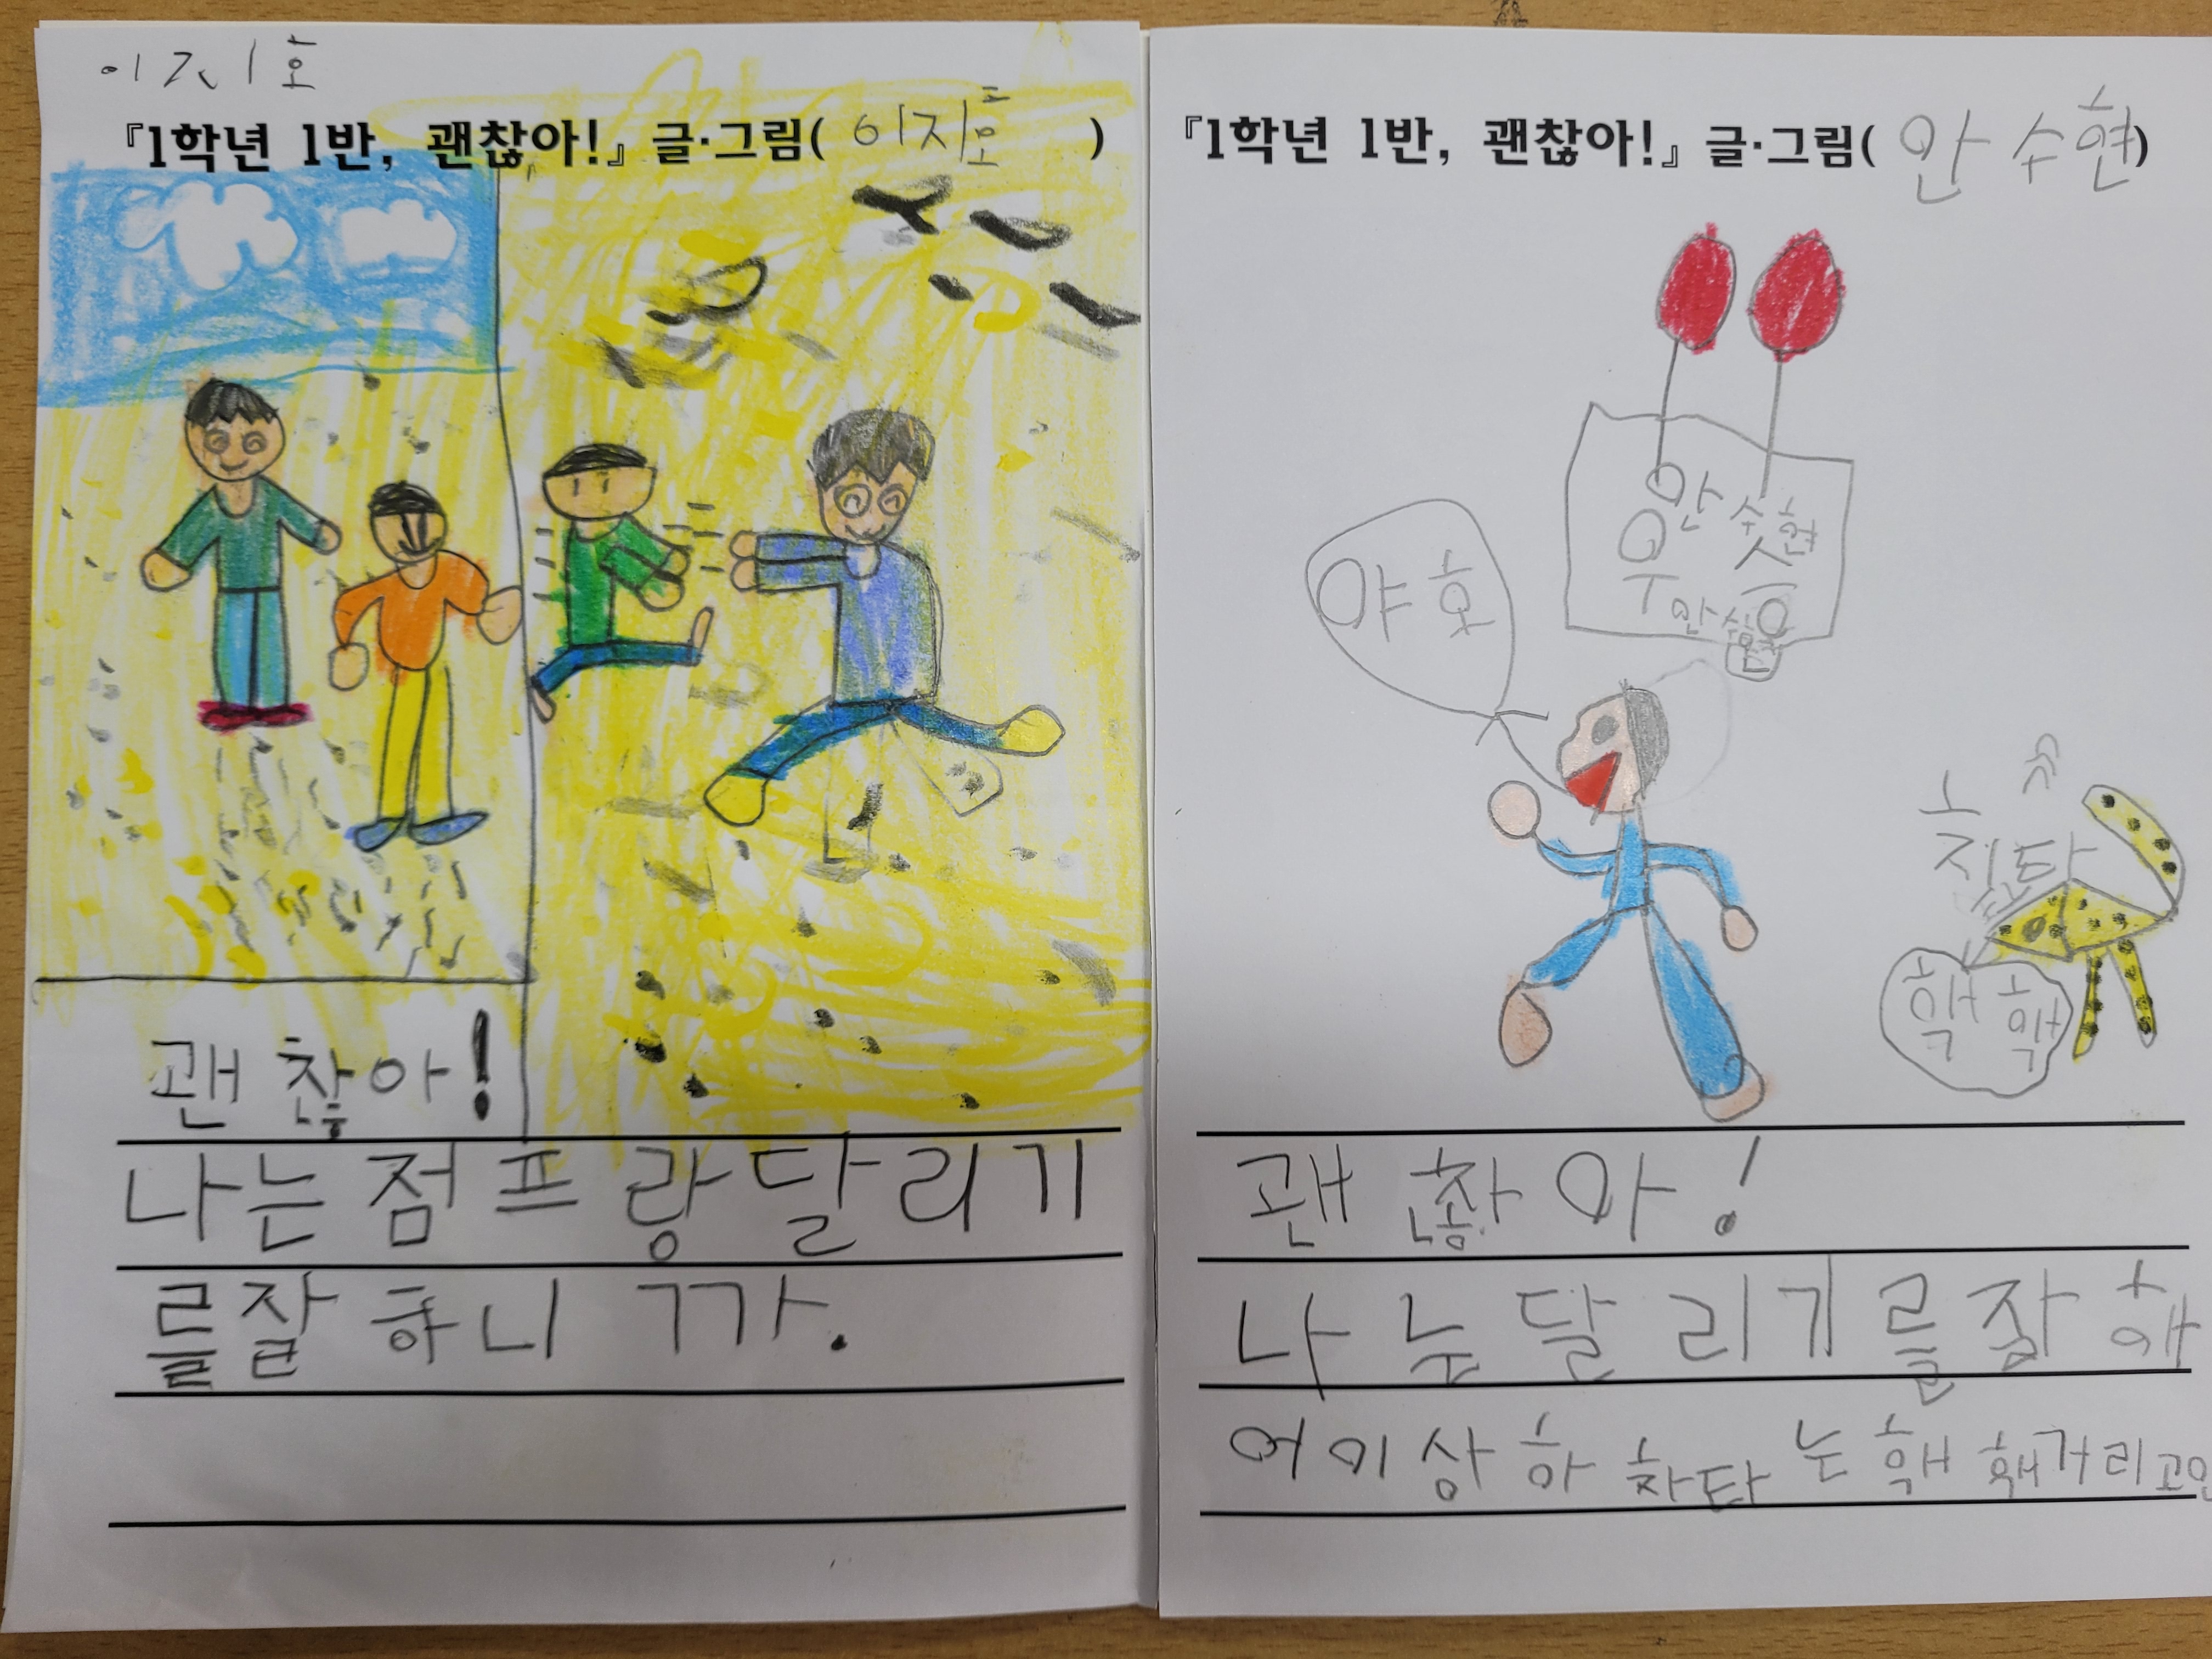 이지호
『1학년 1반, 괜찮아!』 글·그림( 이지호 )
괜찮아!
나는점프랑달리기
를잘하니까.
『1학년 1반, 괜찮아!』 글·그림( 안수현)
안수현
우승
야호
칰타
핵핵
괜찮아!
나는달리기를잘해
어이상하차타는핵핵거리고